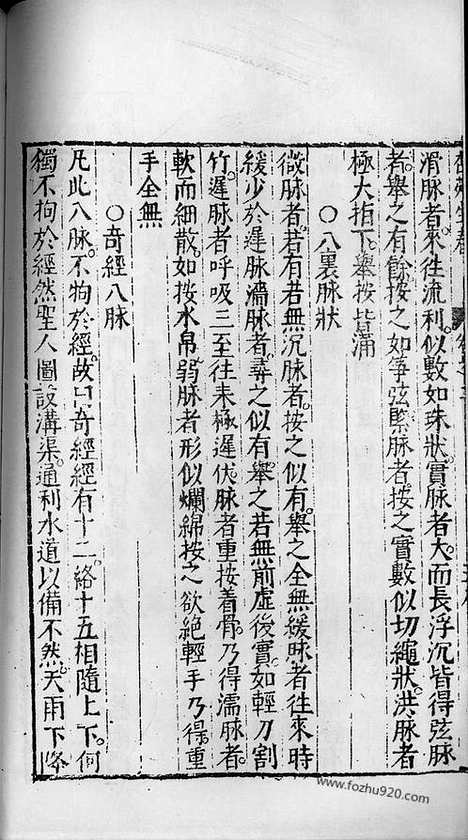 滑脉者。來往流利。似數如珠狀。實脉者大。而長浮沉皆得弦脉
者。舉之有餘按之如箏弦緊脉者。按之實數似切繩狀。洪脉者
極大拍下。舉按皆涌
○八裏脉狀
微脉者。若有若無沉脉者。按之似有。舉之全無緩脉者往來時
緩少於遲脉濇脉者。尋之似有。舉之若無前虛後實。如輕刀割
竹。遲脉者呼吸三至往來極遲伏脉者重按着骨。乃得濡脉者。
軟而細散。如按水帛。弱脉者形似爛綿按之欲絕輕手乃得。重
手全無
○奇經八脉
凡此八脉。不拘於經。故曰奇經經有十二。絡十五相隨上下。何
獨不拘於經然聖人圖設溝渠。通利水道以備不然。天雨下降
www.fozhu920.com